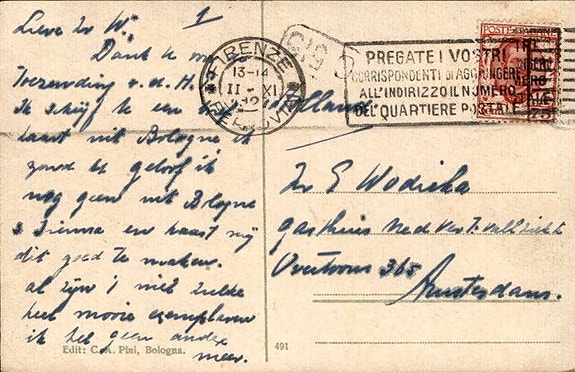 Lieve Zr W.
1
Dank U m
Toezending v. d. H.
Ik schrijf U een
kaart uit Bologne ik
zond U geloof ik
nog geen uit Blogne
& Sienna en haast mij
dit goed te maken.
al zijn 't niet zulke
heel mooie exemplaren
ik heb geen andere
meer.
FIRENZE
13-14
II - XI
FERROVIA
PREGATE I VOSTRI
CORRISPONDENTI DI AGGIUNGERE
ALL'INDIRIZZO IL NUMERO
DEL QUARTIERE POSTALE
POSTE
75
Holland
Zr E Wodicka
gasthuis Ned Ver v.
Overtoom 365
Amsterdam.
Edit: C. A. Pini, Bologna.
491